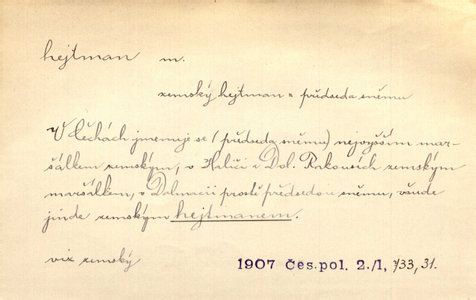 hejtman m.
zemský hejtman = předseda sněmu
V Čechách jmenuje se (předseda sněmu) nejvyšším mar-
šálkem zemským, v Haliči a Dol. Rakousích zemským
maršálkem, v Dalmacii prostě předsedou sněmu, všude
jinde zemským hejtmanem.
viz zemský
1907 Čes. pol. 2./1, 733, 31.